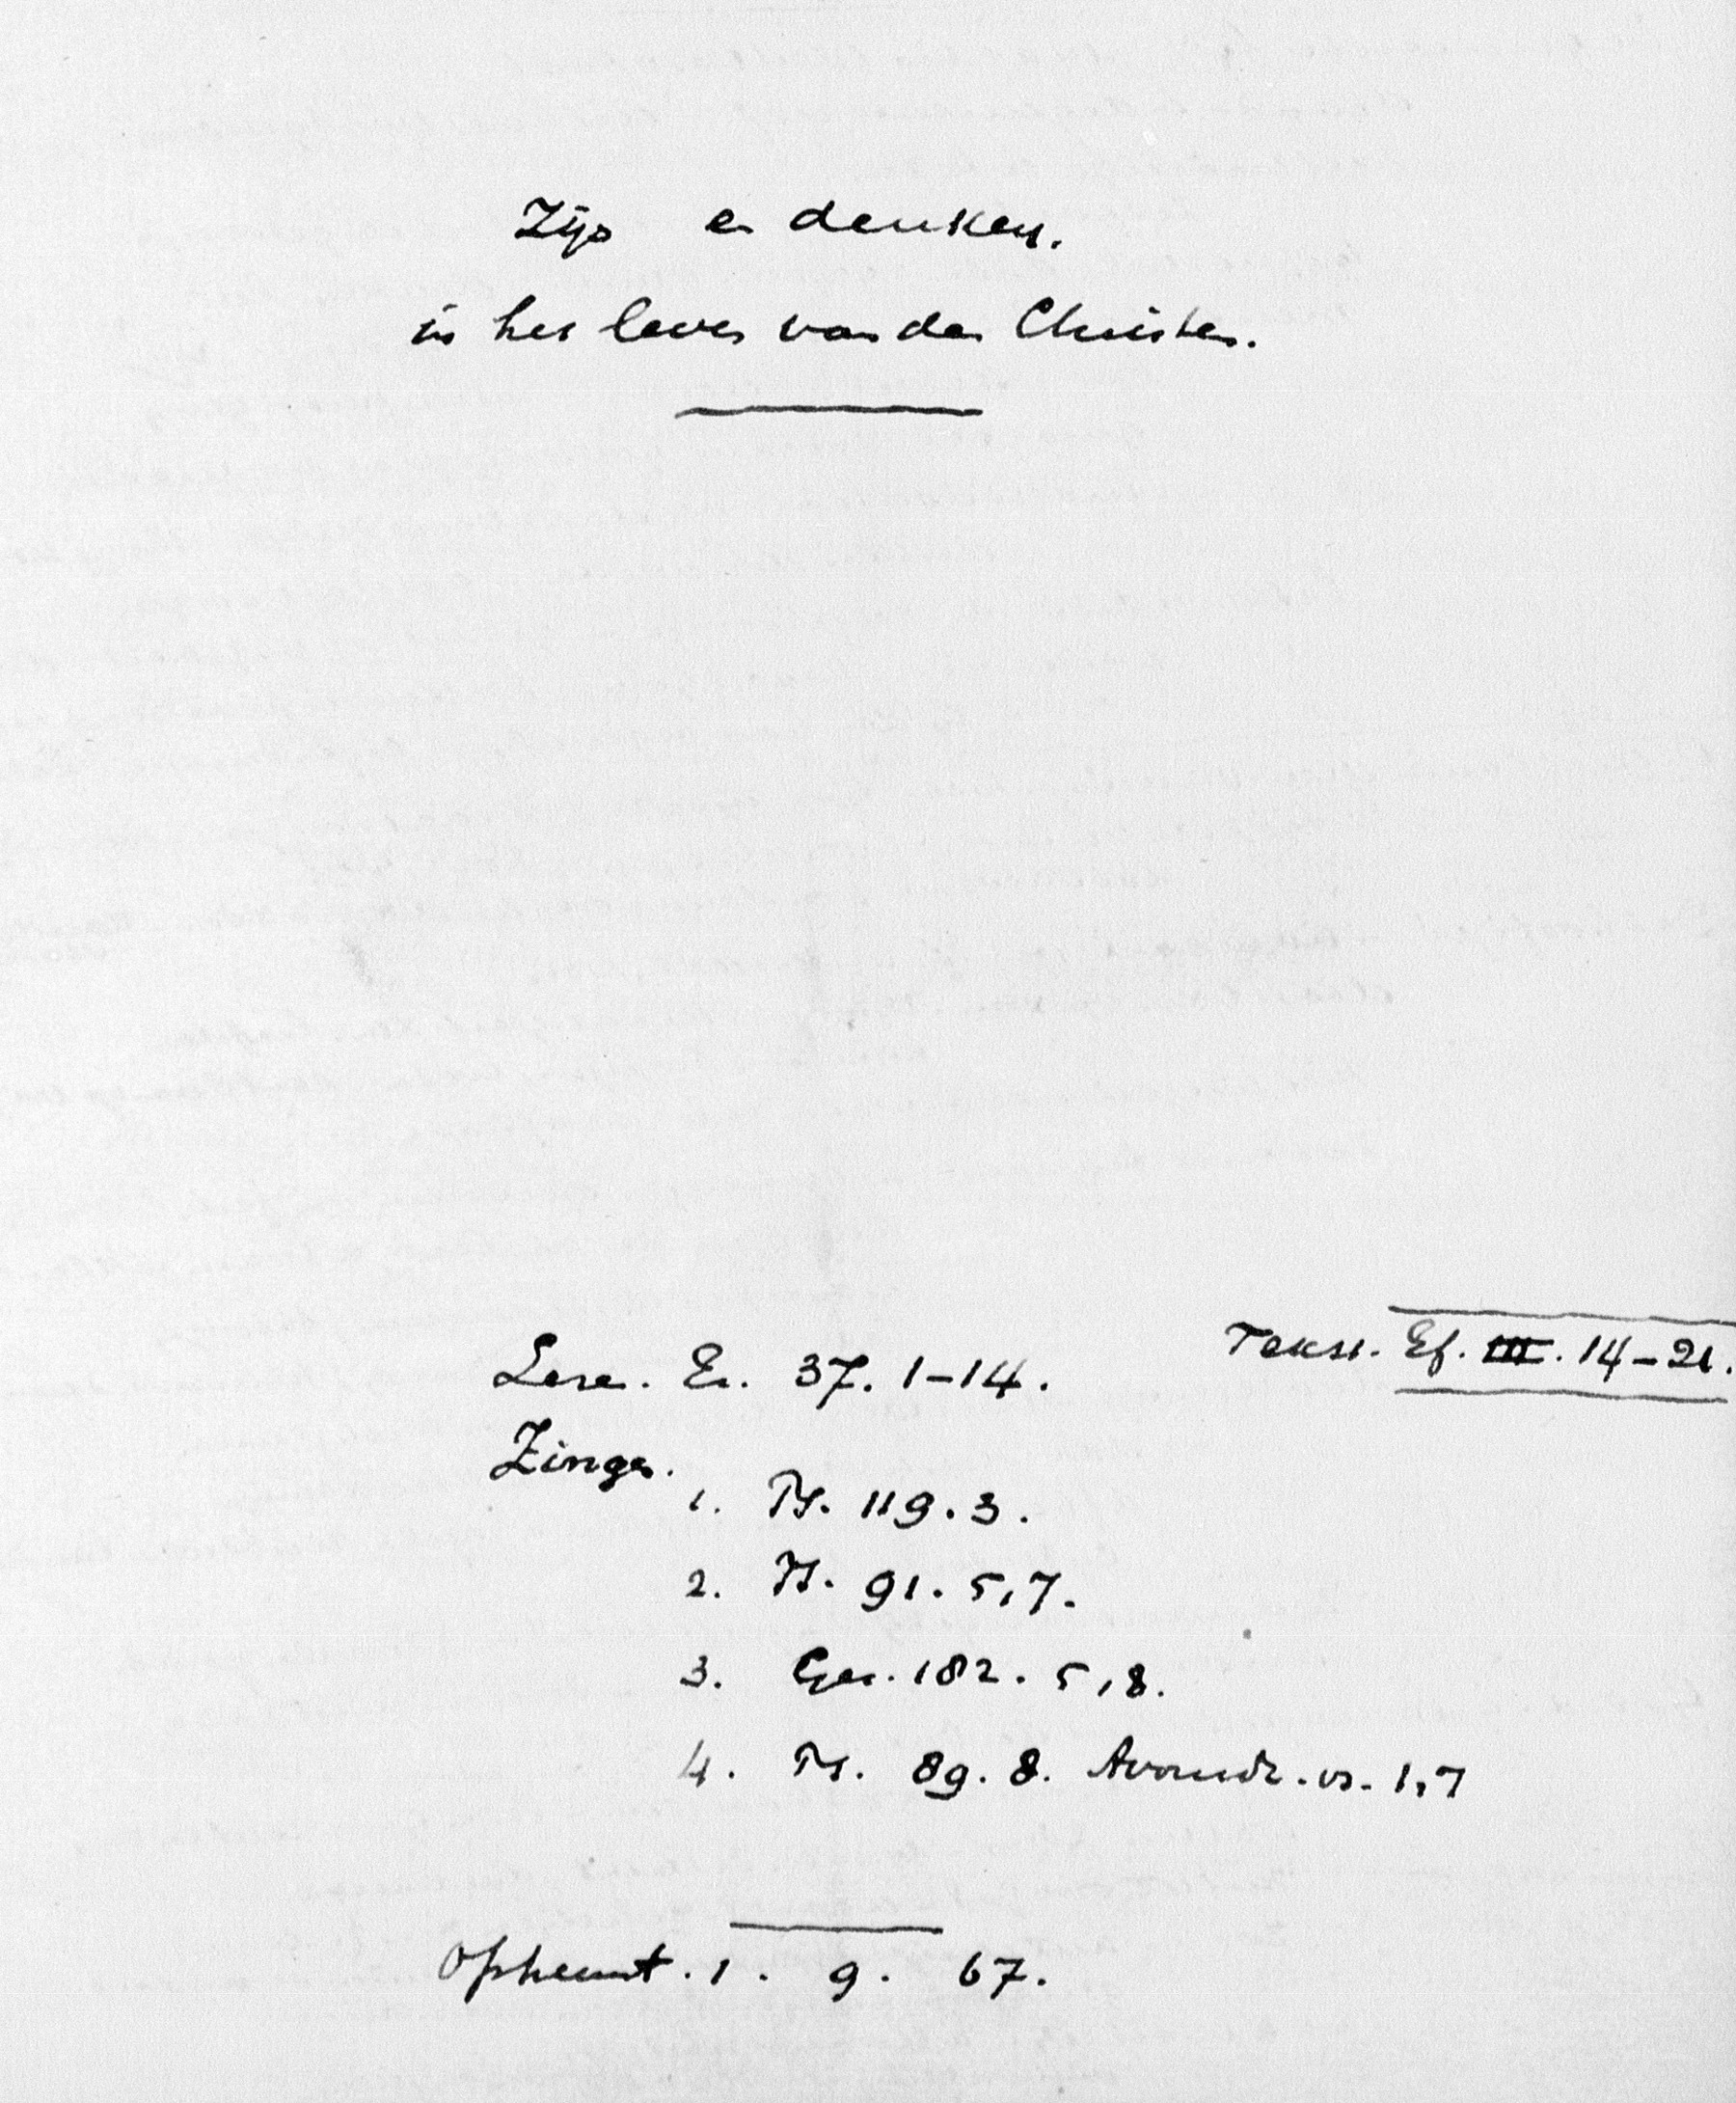 Zijn en denken.
in het leven van den Christen.
Tekst. Ef. III. 14-21.
Lezen. Ez. 37. 1-14.
Zingen.
1. Ps. 119. 3.
2. Ps. 91. 5,7.
3. Gez. 182. 5,8.
4. Ps. 89. 8. Avondz. vs. 1,7
Ophemert. 1. 9. 67.